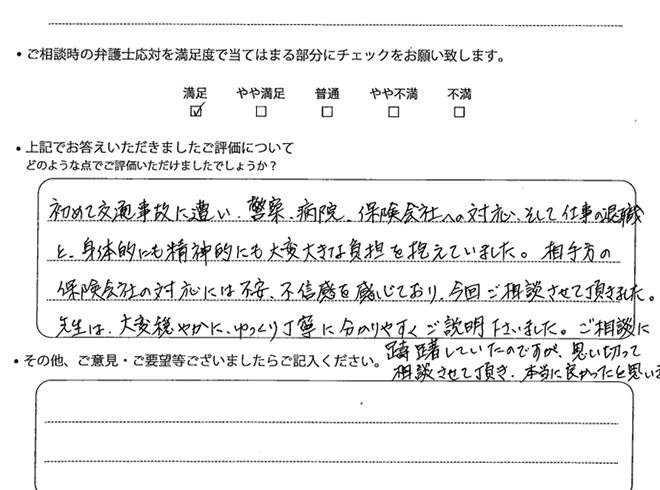 • ご相談時の弁護士応対を満足度で当てはまる部分にチェックをお願い致します。
満足 やや満足 普通 やや不満 不満
☑ □ □ □ □
• 上記でお答えいただきましたご評価について
どのような点でご評価いただけましたでしょうか？
初めて交通事故に遭い、警察、病院、保険会社への対応、そして仕事の退職
と、身体的にも精神的にも大変大きな負担を抱えていました。相手方の
保険会社の対応には不安、不信感を感じており、今回ご相談させて頂きました。
先生は、大変穏やかに、ゆっくり丁寧に分かりやすくご説明下さいました。ご相談に
躊躇していたのですが、思い切って
相談させて頂き、本当に良かったと思いま
• その他、ご意見・ご要望等ございましたらご記入ください。